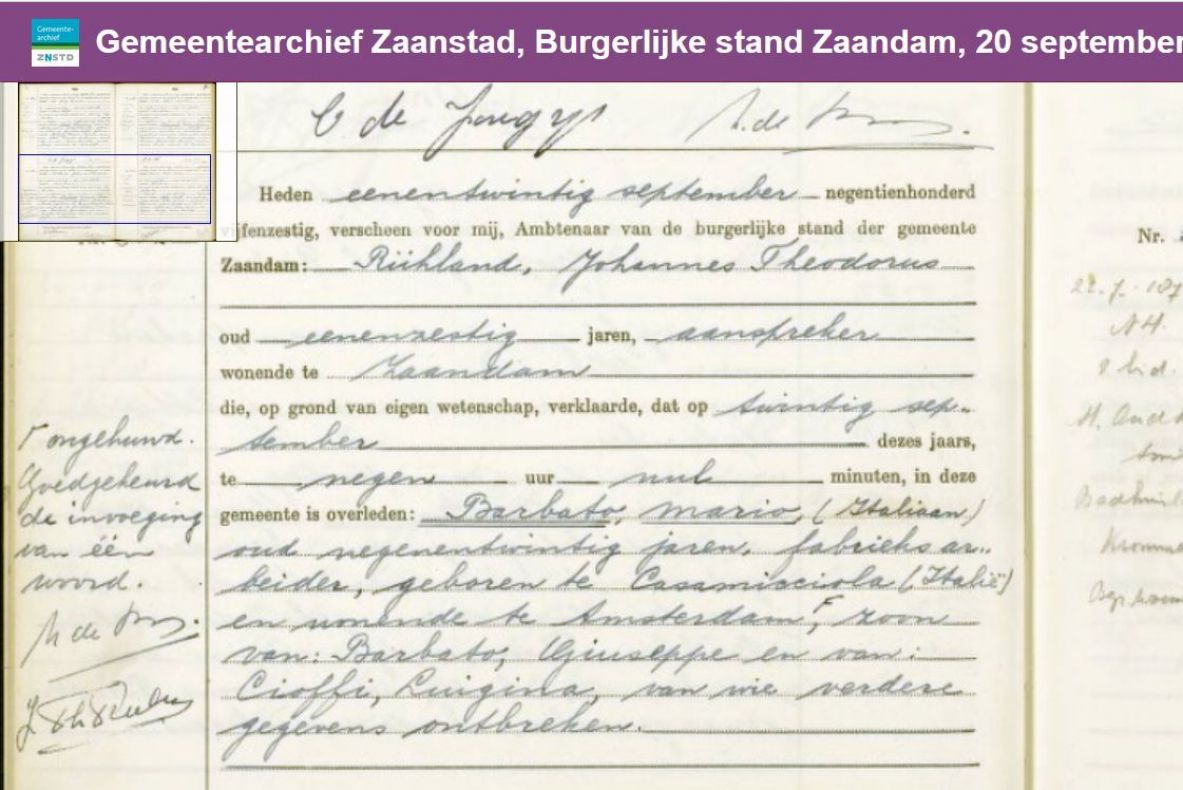 Gemeente-
archief
ZNSTD
Gemeentearchief Zaanstad, Burgerlijke stand Zaandam, 20 september
C de Jong
Heden eenentwintig september negentienhonderd
vijfenzestig, verscheen voor mij, Ambtenaar van de burgerlijke stand der gemeente
Zaandam: Rühland, Johannes Theodorus
oud eenenzestig jaren, aanspreker
wonende te Zaandam
die, op grond van eigen wetenschap, verklaarde, dat op twintig sep-
tember dezes jaars,
te negen uur nul minuten, in deze
gemeente is overleden: Barbato, Mario, (Italiaan)
oud negenentwintig jaren, fabrieksar-
beider, geboren te Casamicciola (Italië)
en wonende te Amsterdam, zoon
van: Barbato, Giuseppe en van:
Cioffi, Luigina, van wie verdere
gegevens ontbreken.
ongehuwd.
Goedgekeurd
de invoeging
van één
woord.
Nr.